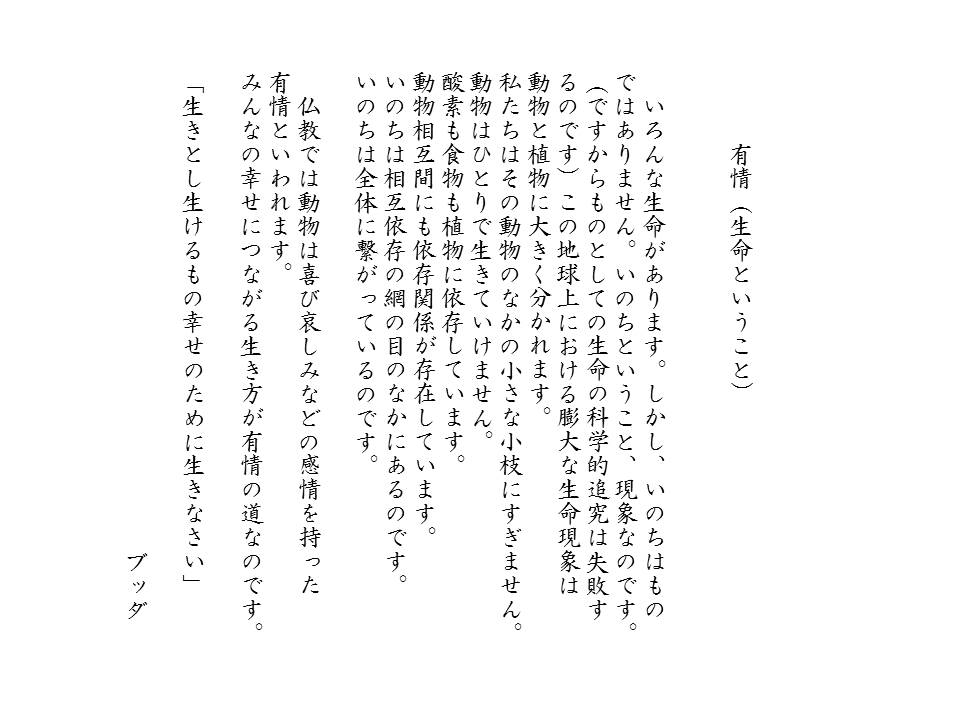 有情（生命ということ）
いろんな生命があります。しかし、いのちはもの
ではありません。いのちということ、現象なのです。
（ですからものとしての生命の科学的追究は失敗す
るのです）この地球上における膨大な生命現象は
動物と植物に大きく分かれます。
私たちはその動物のなかの小さな小枝にすぎません。
動物はひとりで生きていけません。
酸素も食物も植物に依存しています。
動物相互間にも依存関係が存在しています。
いのちは相互依存の網の目のなかにあるのです。
いのちは全体に繋がっているのです。
仏教では動物は喜び哀しみなどの感情を持った
有情といわれます。
みんなの幸せにつながる生き方が有情の道なのです。
「生きとし生けるもの幸せのために生きなさい」
ブッダ